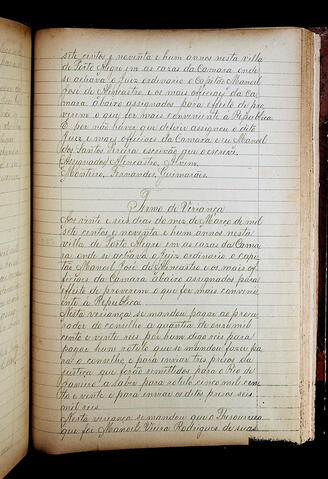 sete centos e noventa e hum annos nesta villa
de Porto Alegre em as cazas da Camara onde
se achava o Juiz ordinario o Capitão Manoel
José de Alencastro e os mais officiaes da Ca
mara abaixo assignados para effeito de pro
verem o que for mais conveniente á Republica
E por não haver que deferir assignou o dito
Juiz e mais officiaes da Camara e eu Manoel
dos Santos Pereira escrivão que o escrevi.
Assignados Alencastro, Alvim,
Monteiro, Fernandes, Guimarães.
Termo de Veriança
Aos vinte e seis dias do mez de Março de mil
sete centos e noventa e hum annos nesta
villa de Porto Alegre em as cazas da Cama
ra onde se achava o Juiz ordinario o capi
tão Manoel José de Alencastro e os mais of
ficiaes da Camara abaixo assignados para
effeito de proverem o que for mais conveni
ente á Republica
Nesta veriança se mandou pagar ao procu
rador do conselho a quantia de onze mil
cento e vinte reis por hum digo reis para
pagar hum rotulo que se mandou fazer pa
ra o conselho e para enviar tres prezos da
justiça que forão remettidos para o Rio de
Janeiro a saber para rotulo cinco mil cen
to e vinte e para enviar os ditos prezos seis
mil reis
Nesta veriança se mandou que o Thesoureiro
que foi Manoel Vieira Rodrigues de suas